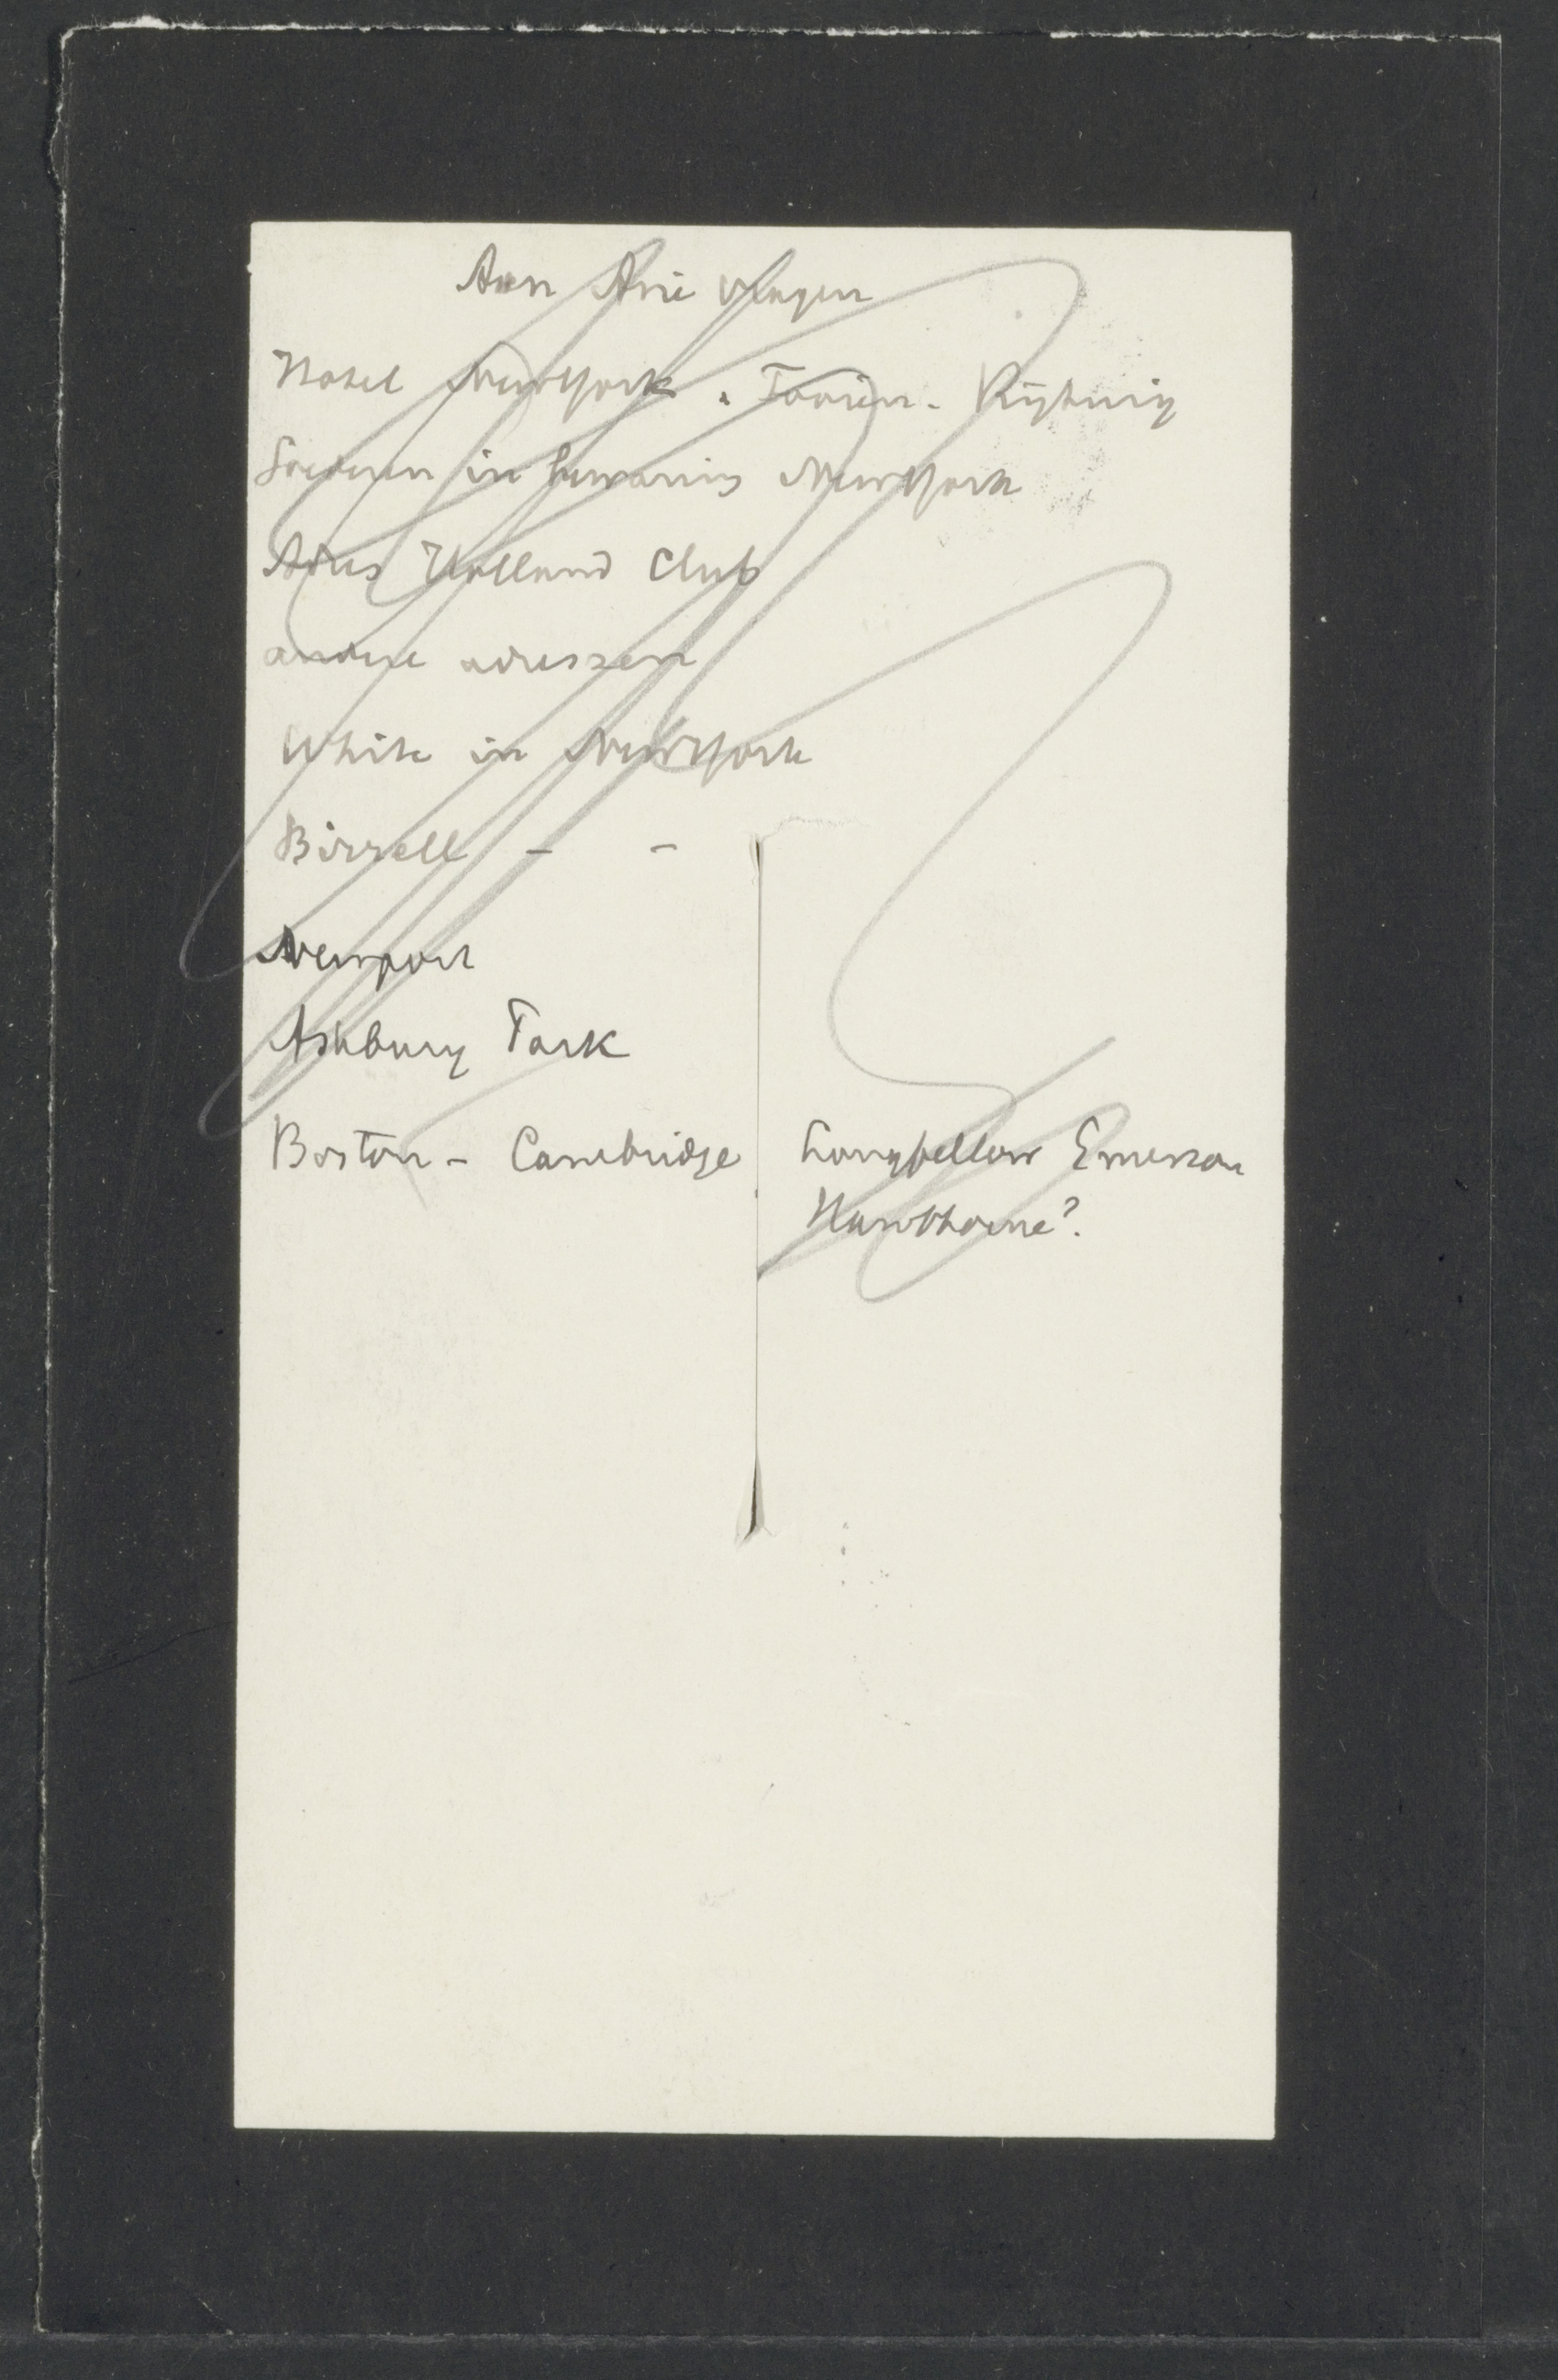 Aan Arie vragen
Hotel New York. Fooien. Rijtuig
Adres Holland Club
andere adressen
White in New York
Birrell - -
Newport
Ashbury Park
Boston - Cambridge Longfellow Emerson
Hawthorne?